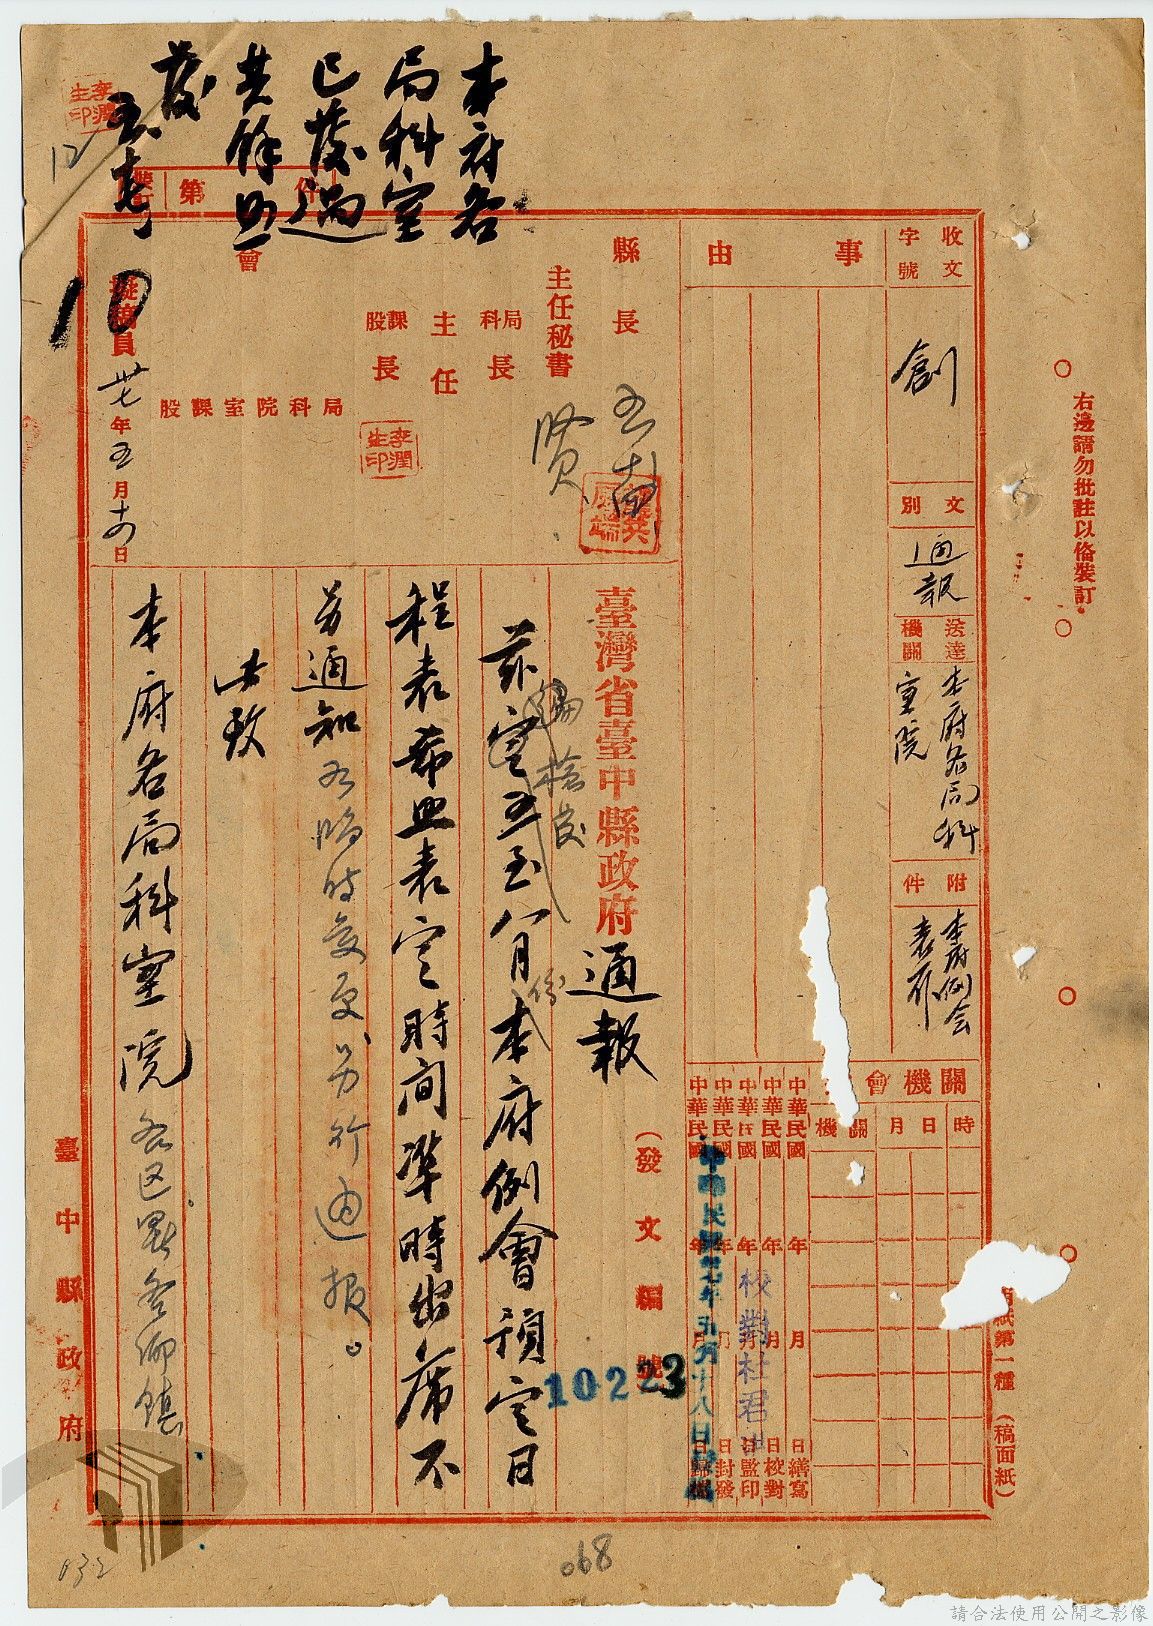 本府各
局科室
已發過
其餘照
發
李潤生印
12
第
件
會
收文
字號
創
文別
通報
送達機關
本府各局科
室院
附件
本府例会
表
事由
縣長
主任秘書
賢
局科長
主任
課股長
李潤生印
局科院室課股
擬稿員
卅七年五月十四日
10
臺灣省臺中縣政府通報
(發文編號
10223
茲編擬五至八月份本府例會預定日
檢發
定
程表希照表定時間準時出席不
另通知如臨時變更另行通报。
此致
本府各局科室院各区署各鄉鎮
關機會
時
日
月
關機
中華民國 年 月 日繕寫
中華民國 年 月 日校對
中華民國 年 月 日監印
中華民國 年 月 日封發
中華民國 年 月 日歸檔
中華民國卅七年五月十八日
校對杜君
右邊請勿批註以俗裝訂
紙第一種(稿面紙)
臺中縣政府
068
032
請合法使用公開之影像